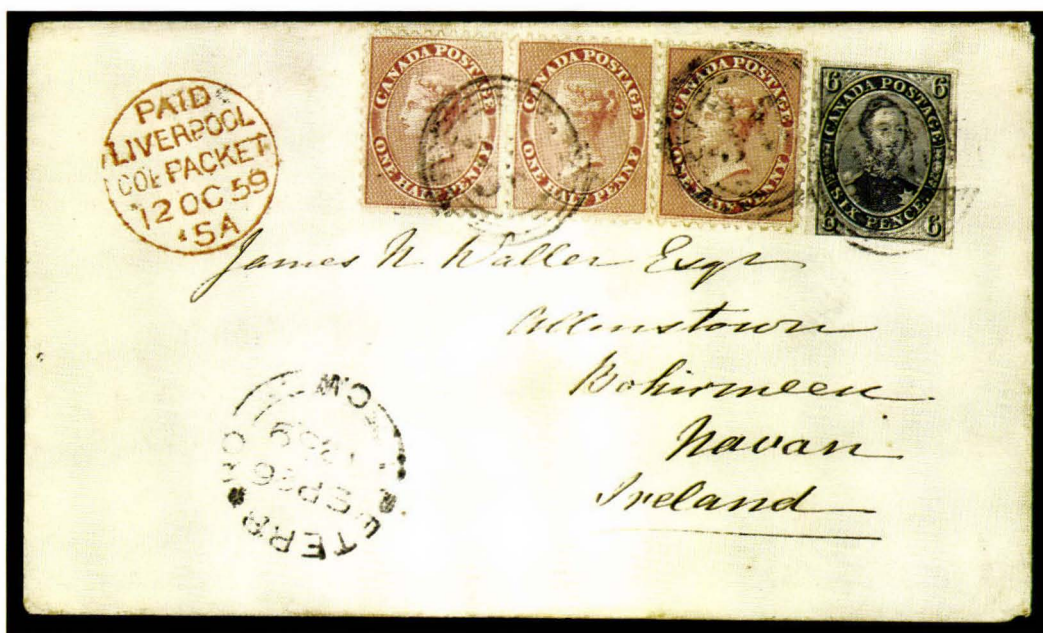 PAID
LIVERPOOL
COL PACKET
12 OC 59
5A
CANADA POSTAGE
ONE HALF PENNY
CANADA POSTAGE
ONE HALF PENNY
CANADA POSTAGE
ONE HALF PENNY
6 CANADA POSTAGE 6
6 SIX PENCE 6
James N Waller Esqr
Allenstown
Bohirmeen
Navan
Ireland
SEP 26
1859